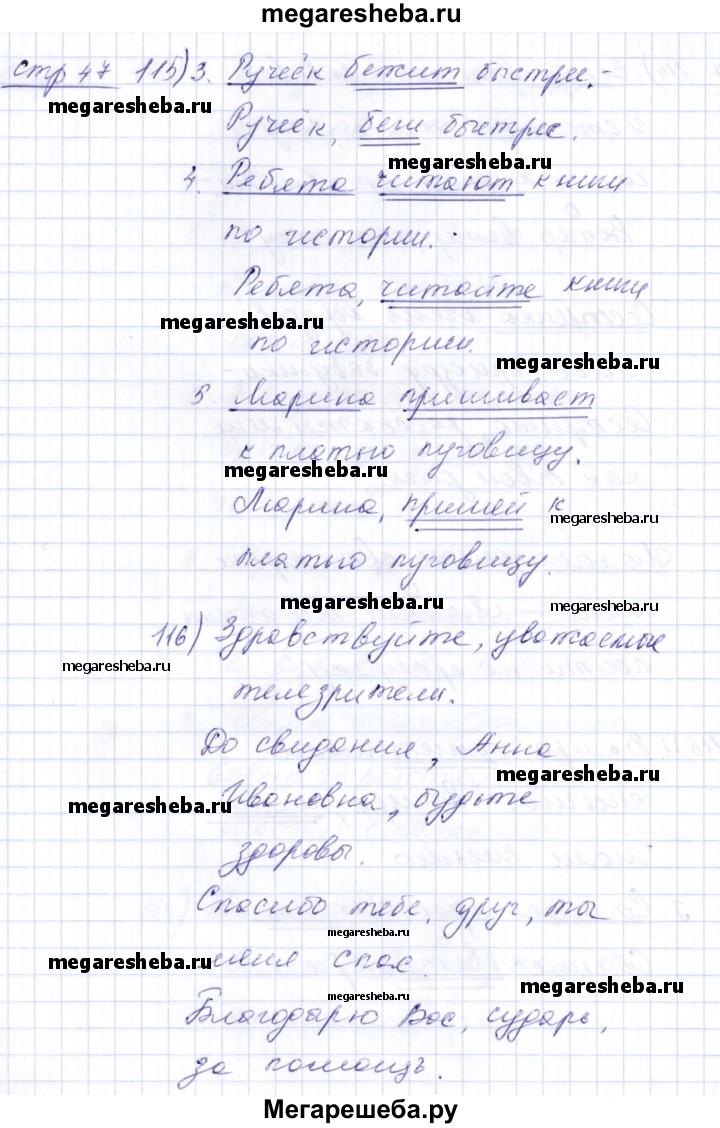 megaresheba.ru
стр 47 115) 3. Ручеёк бежит быстрее. -
megaresheba.ru
Ручеёк, беги быстрее.
megaresheba.ru
4. Ребята читают книги
по истории.
Ребята, читайте книги
megaresheba.ru
по истории.
megaresheba.ru
5. Марина пришивает
к платью пуговицу.
megaresheba.ru
Марина, пришей к
megaresheba.ru
платью пуговицу.
megaresheba.ru
116) Здравствуйте, уважаемые
megaresheba.ru
телезрители.
До свидания, Анна
megaresheba.ru
Ивановна, будьте
megaresheba.ru
здоровы.
Спасибо тебе, друг, ты
megaresheba.ru
меня спас.
megaresheba.ru
megaresheba.ru
megaresheba.ru
Благодарю Вас, сударь,
за помощь.
Мегарешеба.ру